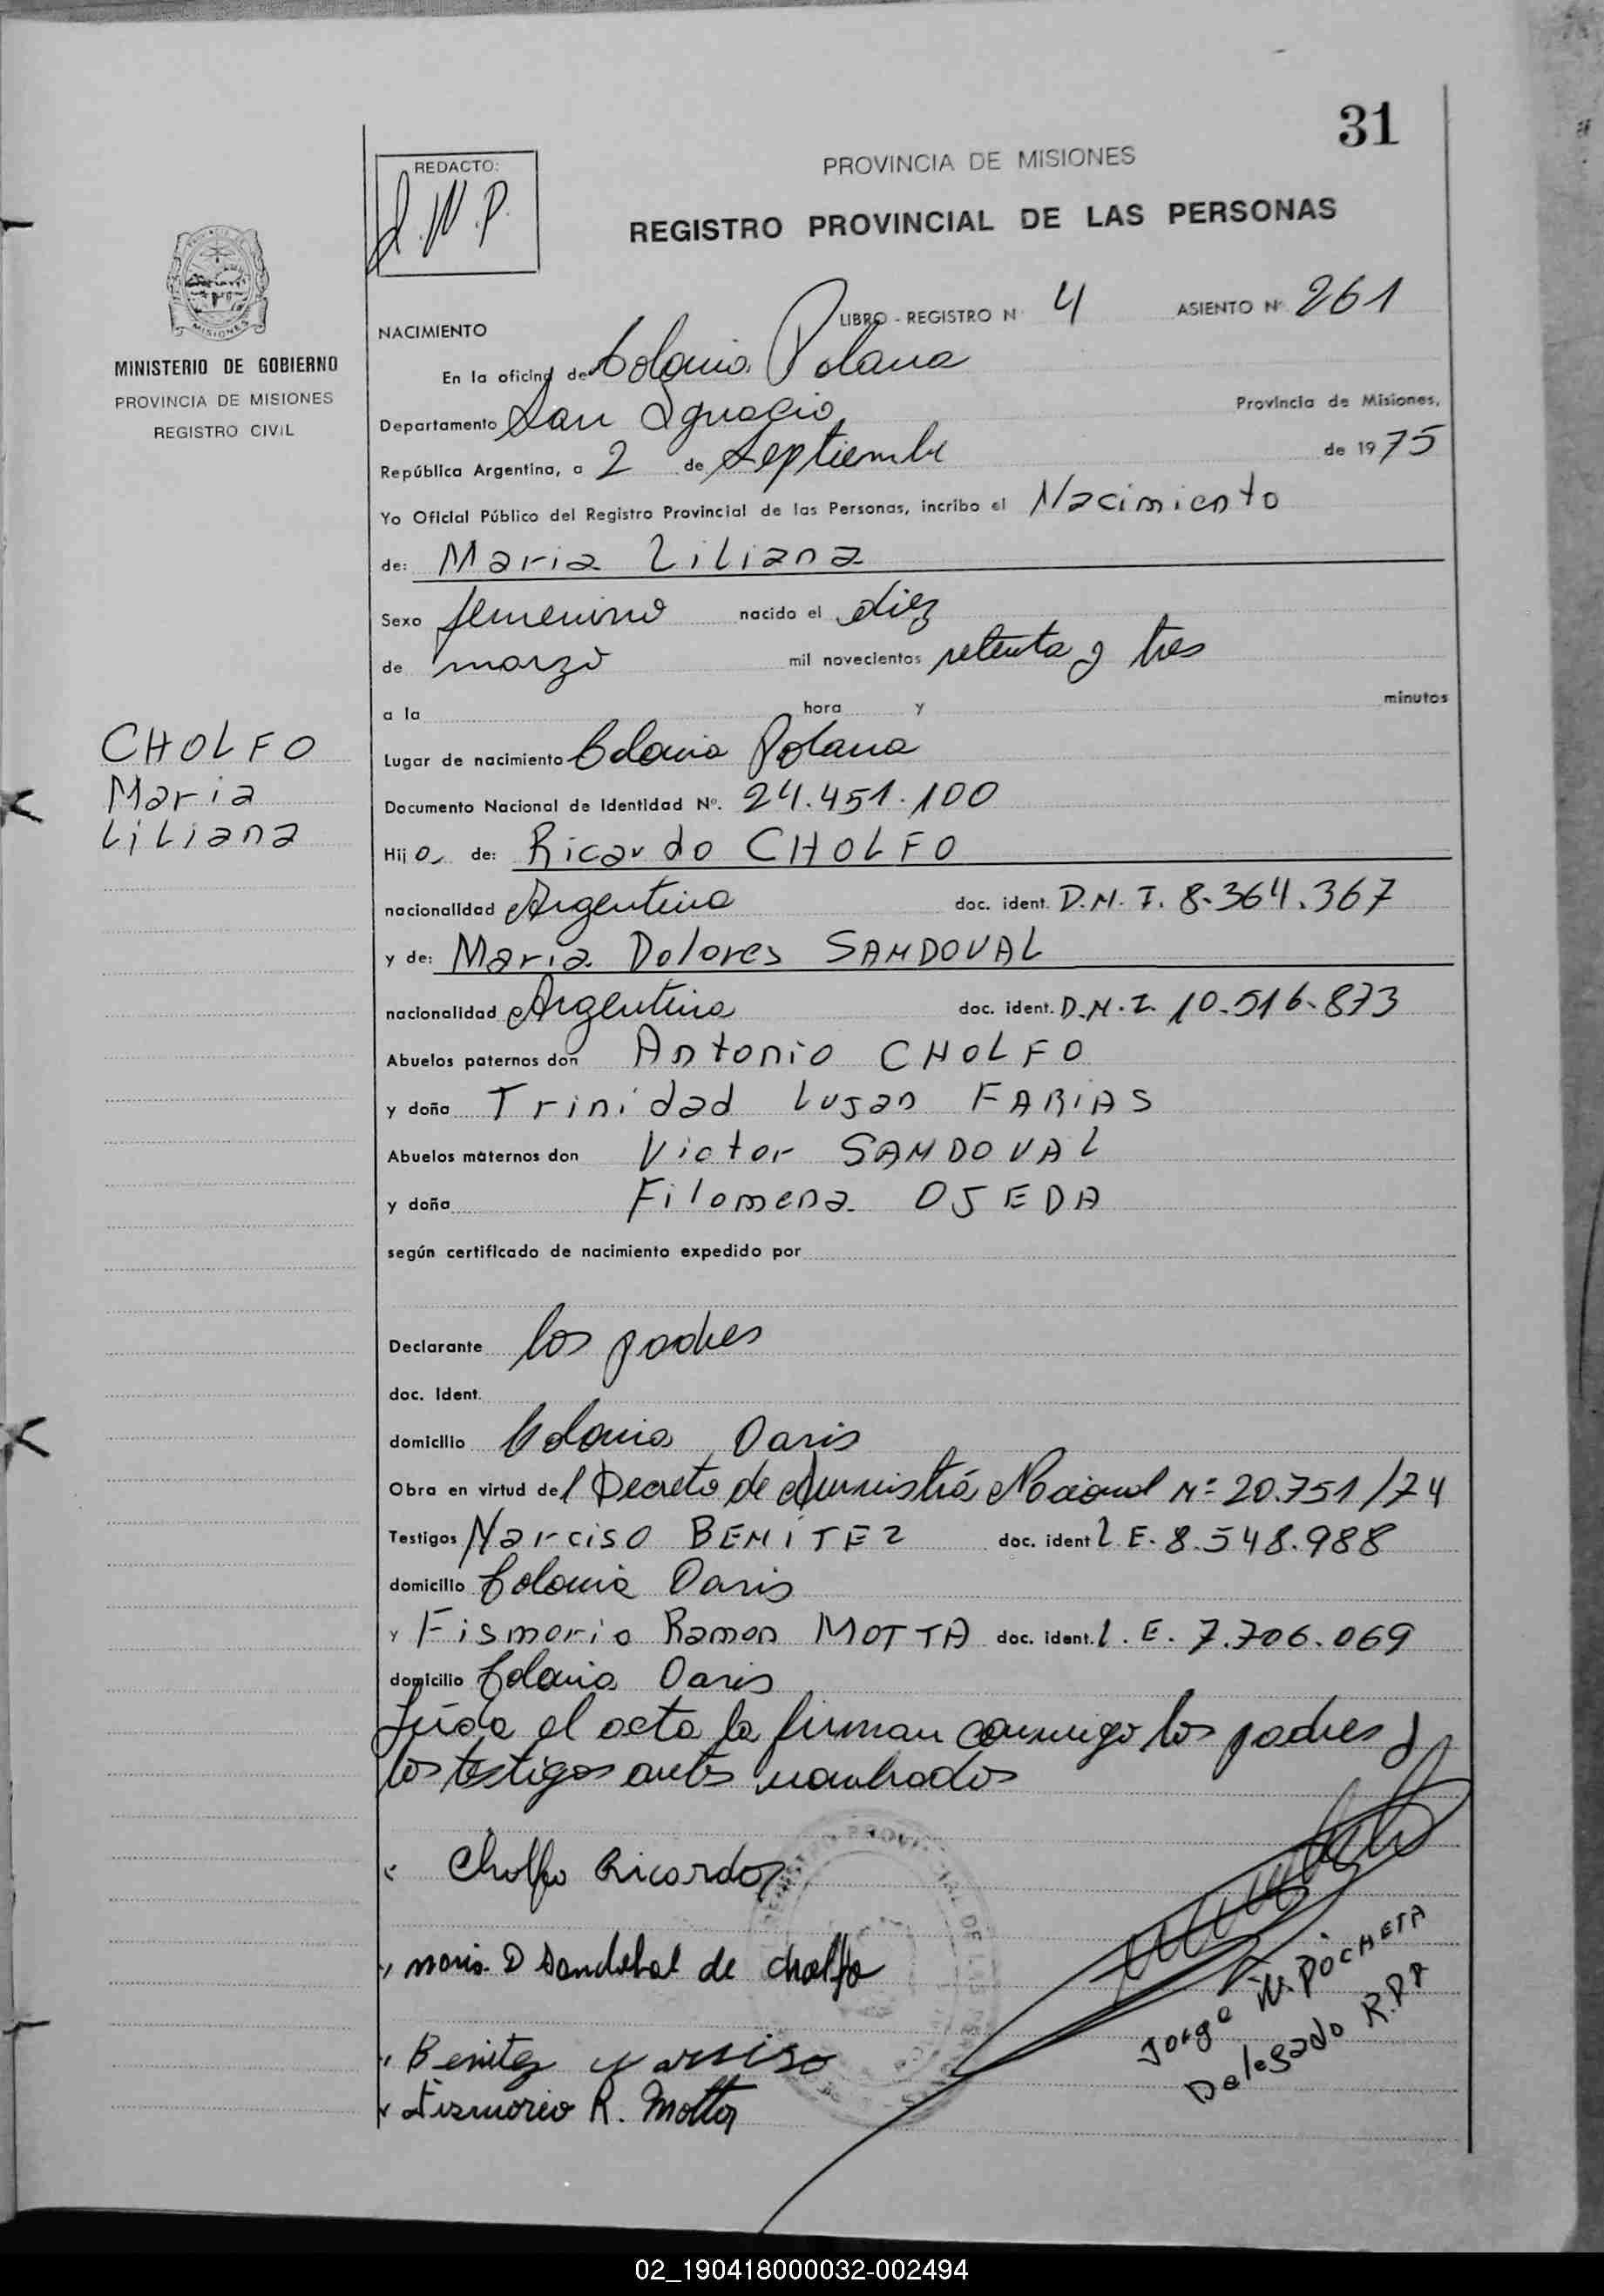 31
REDACTO:
J.W.P.
PROVINCIA DE MISIONES
REGISTRO PROVINCIAL DE LAS PERSONAS
MISIONES
MINISTERIO DE GOBIERNO
PROVINCIA DE MISIONES
REGISTRO CIVIL
NACIMIENTO LIBRO - REGISTRO N 4 ASIENTO Nº 261
En la oficina de Colonia Polana
Departamento San Ignacio Provincia de Misiones,
República Argentina, a 2 de Septiembre de 1975
Yo Oficial Público del Registro Provincial de las Personas, incribo el Nacimiento
de: Maria Liliana
Sexo femenino nacido el diez
de marzo mil novecientos setenta y tres
a la hora y minutos
CHOLFO
Maria
Liliana
Lugar de nacimiento Colonia Polana
Documento Nacional de Identidad Nº. 24.451.100
Hij a de: Ricardo CHOLFO
nacionalidad Argentina doc. ident. D.N.I. 8.364.367
y de: Maria Dolores SANDOVAL
nacionalidad Argentina doc. ident. D.N.I. 10.516.873
Abuelos paternos don Antonio CHOLFO
y doña Trinidad Lujan FARIAS
Abuelos maternos don Victor SANDOVAL
y doña Filomena OJEDA
según certificado de nacimiento expedido por
Declarante los padres
doc. Ident.
domicilio Colonia Oasis
Obra en virtud del Decreto de Amnistía Nacional Nº 20.751/74
Testigos Narciso BENITEZ doc. ident L.E. 8.548.988
domicilio Colonia Oasis
y Fismorio Ramon MOTTA doc. ident. L.E. 7.706.069
domicilio Colonia Oasis
Leída el acta la firman conmigo los padres y
los testigos antes nombrados
Cholfo Ricardo
Maria D Sandobal de Cholfo
Benitez Narciso
Fismorio R. Motta
Jorge W. POCHETA
Delegado R.P.P
02_190418000032-002494